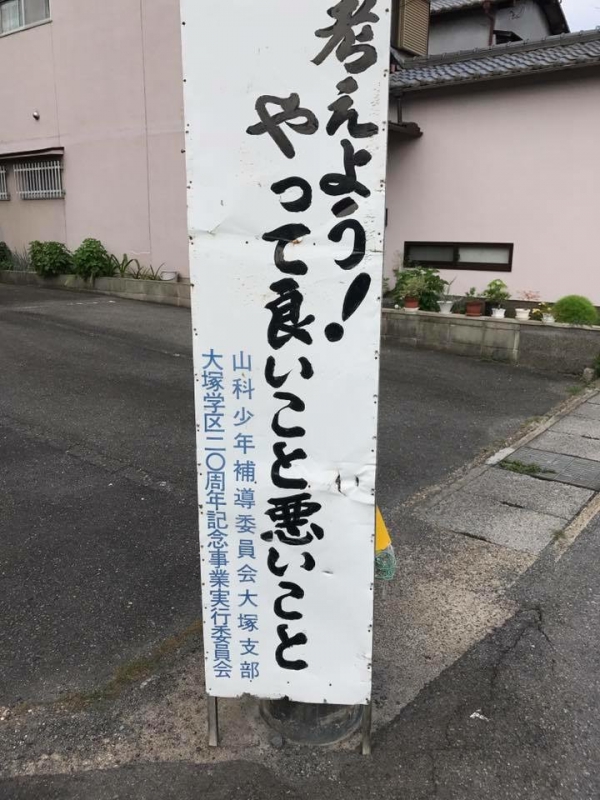 考えよう！
やって良いこと悪いこと
山科少年補導委員会大塚支部
大塚学区二〇周年記念事業実行委員会